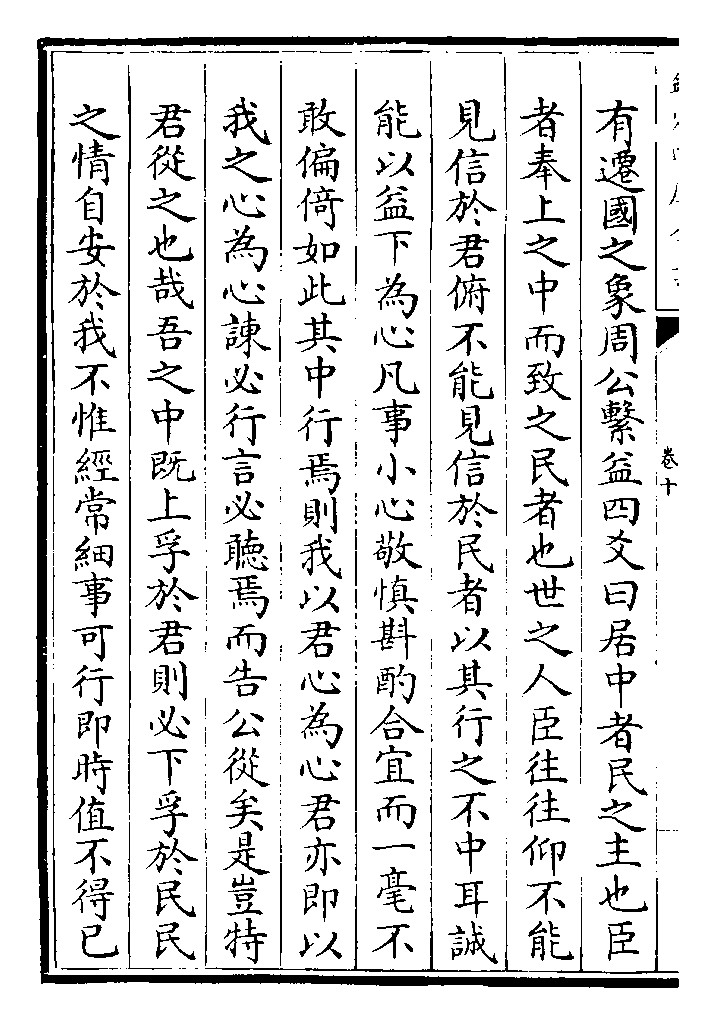 卷十
有遷國之象周公繫益四爻曰居中者民之主也臣
者奉上之中而致之民者也世之人臣往往仰不能
見信於君俯不能見信於民者以其行之不中耳誠
能以益下為心凡事小心敬慎斟酌合宜而一毫不
敢偏倚如此其中行焉則我以君心為心君亦即以
我之心為心諫必行言必聽焉而告公從矣是豈特
君從之也哉吾之中既上孚於君則必下孚於民民
之情自安於我不惟經常細事可行即時值不得已